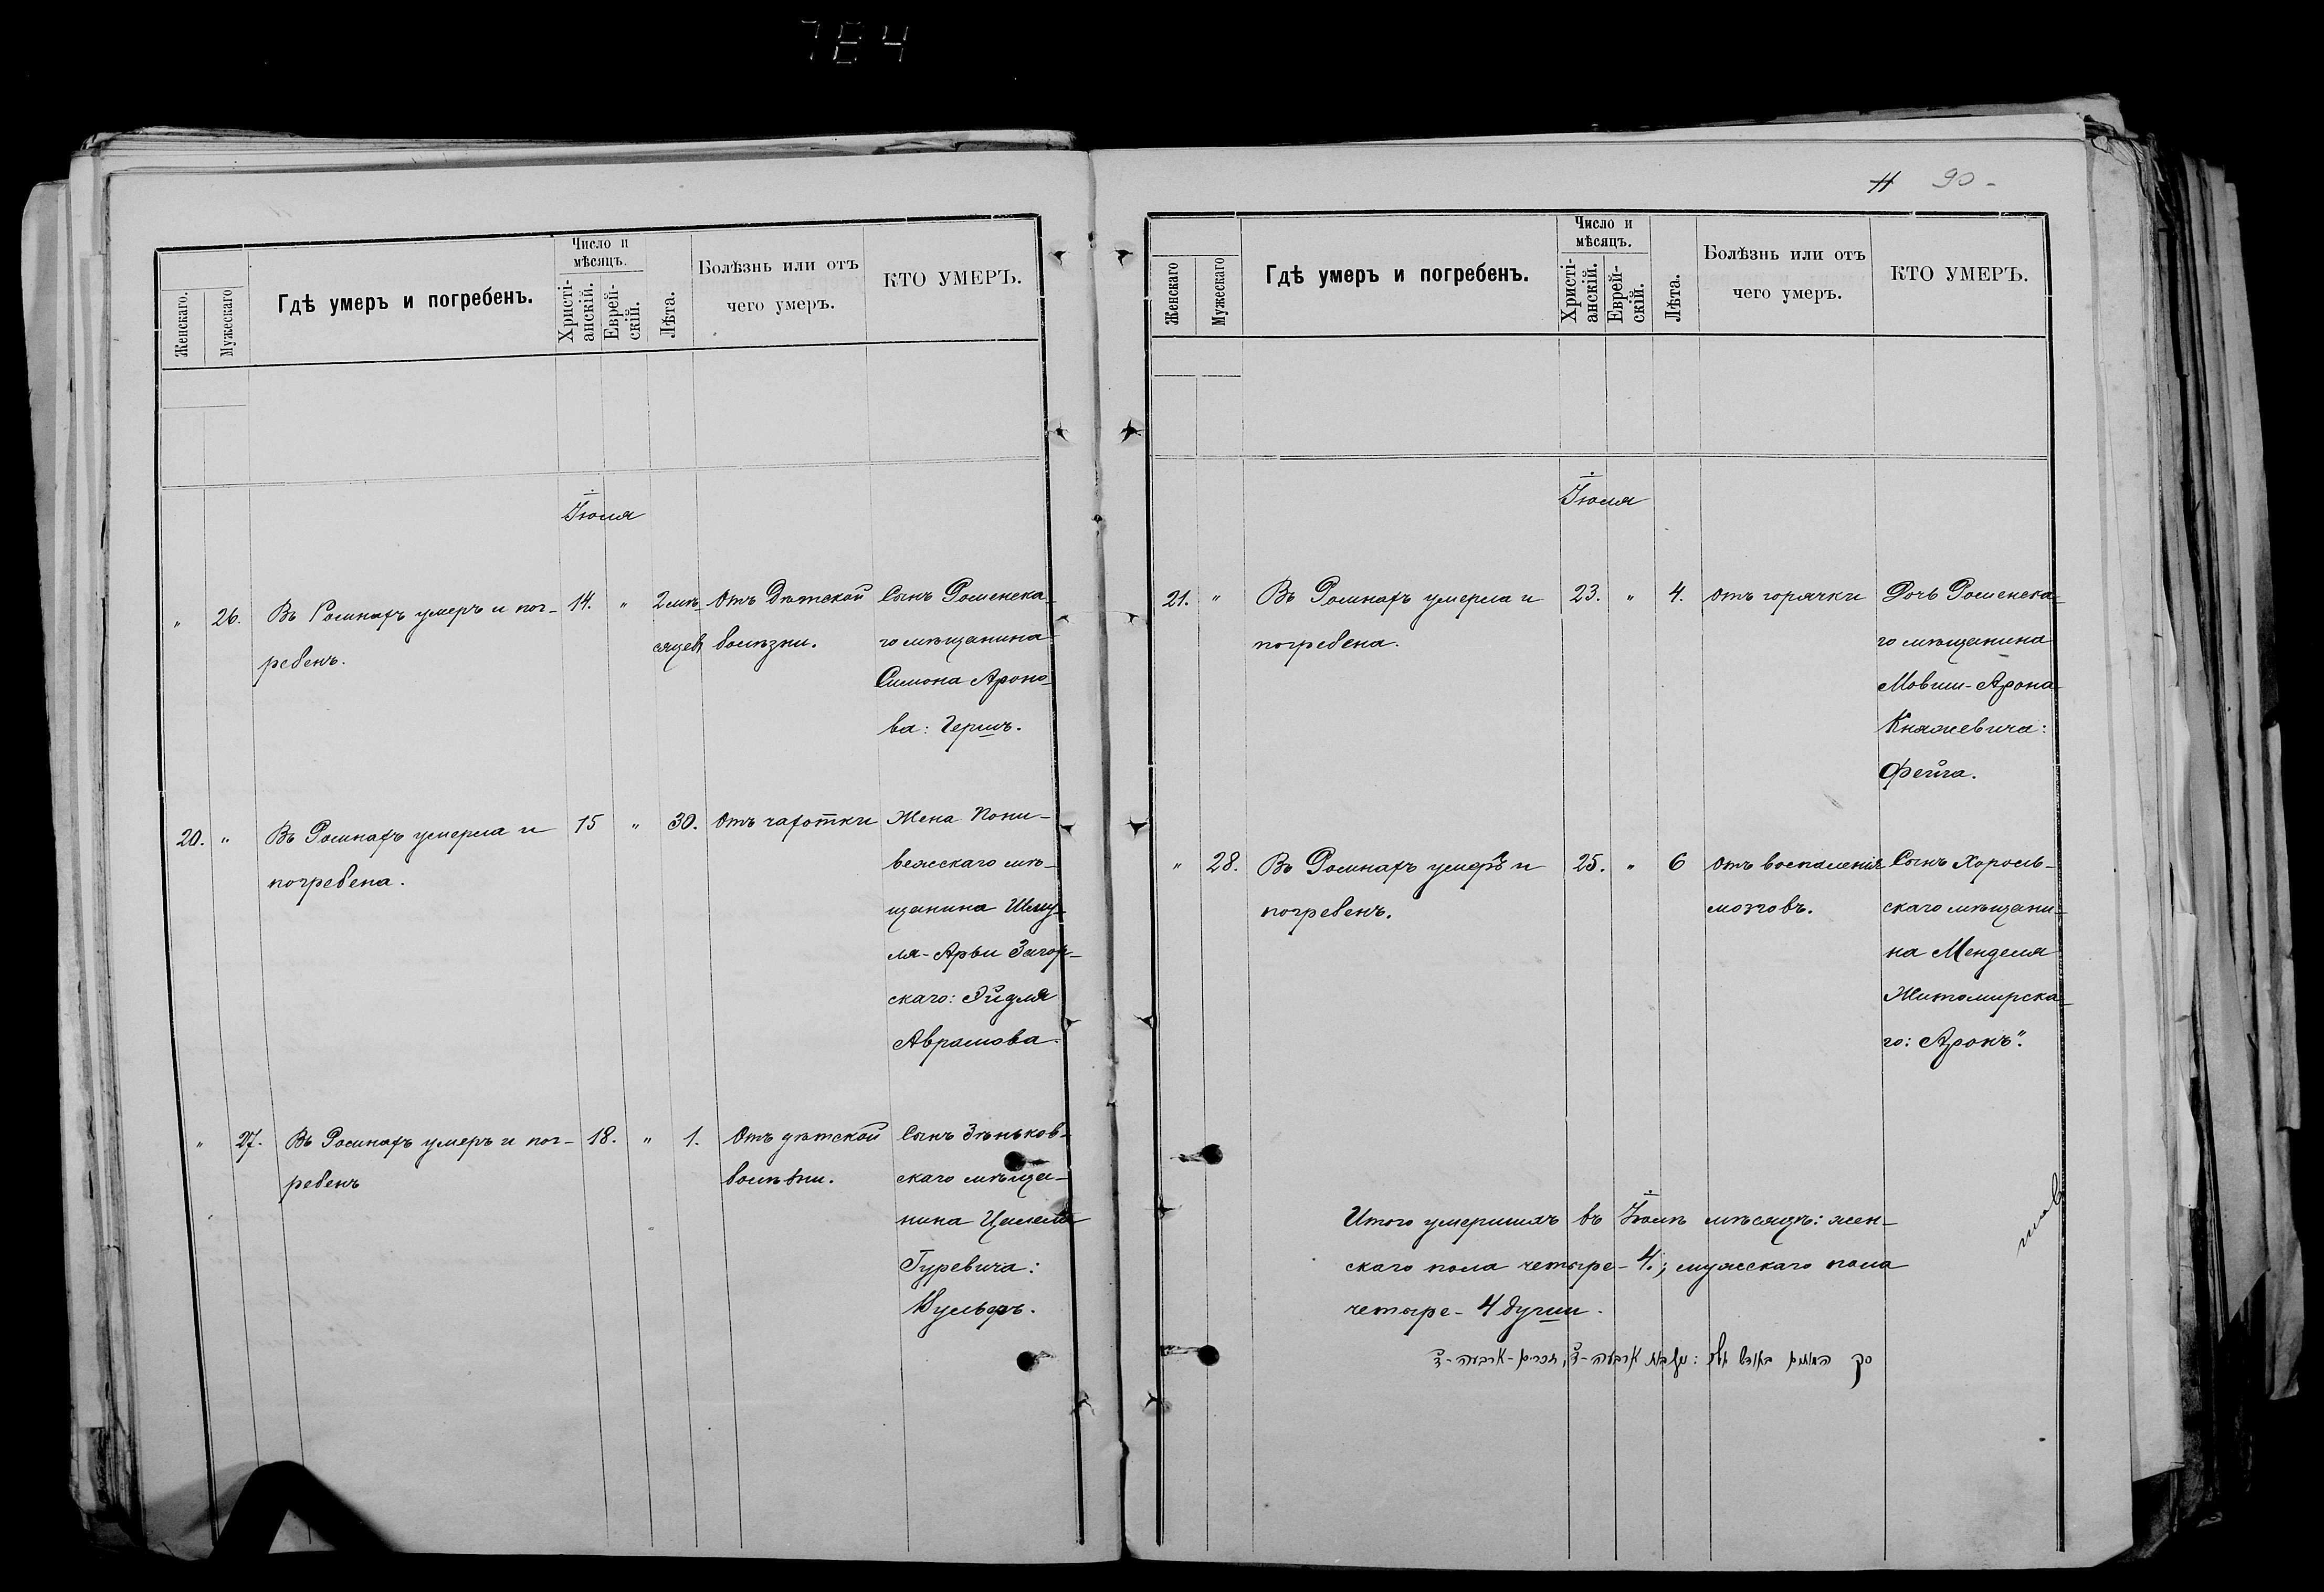 784
Женскаго.
Мужескаго
Гдѣ умеръ и погребенъ.
Число и
мѣсяцъ.
Христі-
анскій.
Еврей-
скій.
Лѣта.
Болѣзнь или отъ
чего умеръ.
КТО УМЕРЪ.
Іюля
" 26. Въ Ромнахъ умеръ и пог-
ребенъ.
14. " 2 мѣ-
сяцевъ
Отъ Дѣтской
болѣзни.
Сынъ Роменска-
го мѣщанина
СимонаАроно-
ва: Гершъ.
20. " Въ Ромнахъ умерла и
погребена.
15 " 30. Отъ чахотки
Жена Пони-
вежскаго мѣ-
щанина Шму-
ля-Арьи Загор-
скаго: Эйдля
Аврамова.
" 27. Въ Ромнахъ умеръ и пог-
ребенъ
18. " 1. Отъ дѣтской
болѣзни.
Сынъ Зѣньков-
скаго мѣща-
нина
Гуревича:
Вульфъ.
90-
Женскаго
Мужескаго
Гдѣ умеръ и погребенъ.
Число и
мѣсяцъ.
Христі-
анскій.
Еврей-
скій.
Лѣта.
Болѣзнь или отъ
чего умеръ.
КТО УМЕРЪ.
Іюля
21. " Въ Ромнахъ умерла и
погребена.
23. " 4. Отъ горячки
Дочь Роменска-
го мѣщанина
Мовши-Арона
Княжевича:
Фейга.
" 28. Въ Ромнахъ умеръ и
погребенъ.
25. " 6 Отъ воспаленія
мозговъ.
Сынъ Хороль-
скаго мѣщани-
на Менделя
Житомирска-
го: Аронъ".
Итого умершихъ въ Іюлѣ мѣсяцѣ: жен-
скаго пола четыре-4.; мужескаго пола
четыре-4 души.
סך המתים בחודש יולי: נקבות ארבעה-ד', זכרים-ארבעה-ד'